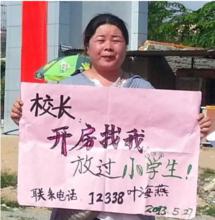 校长
开房找我
放过小学生!
联系电话: 12338 叶海燕
2013.5.27